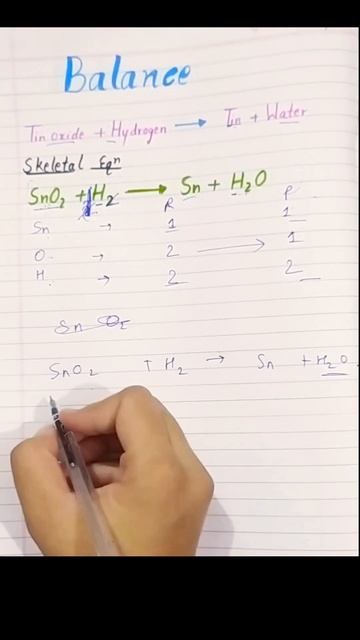 Balance
Tin oxide + Hydrogen → Tin + Water
Skeletal Eqn
SnO₂ + H₂ → Sn + H₂O
R P
Sn → 1 1
O → 2 → 1
H → 2 2
Sn O₂
SnO₂ + H₂ → Sn + H₂O